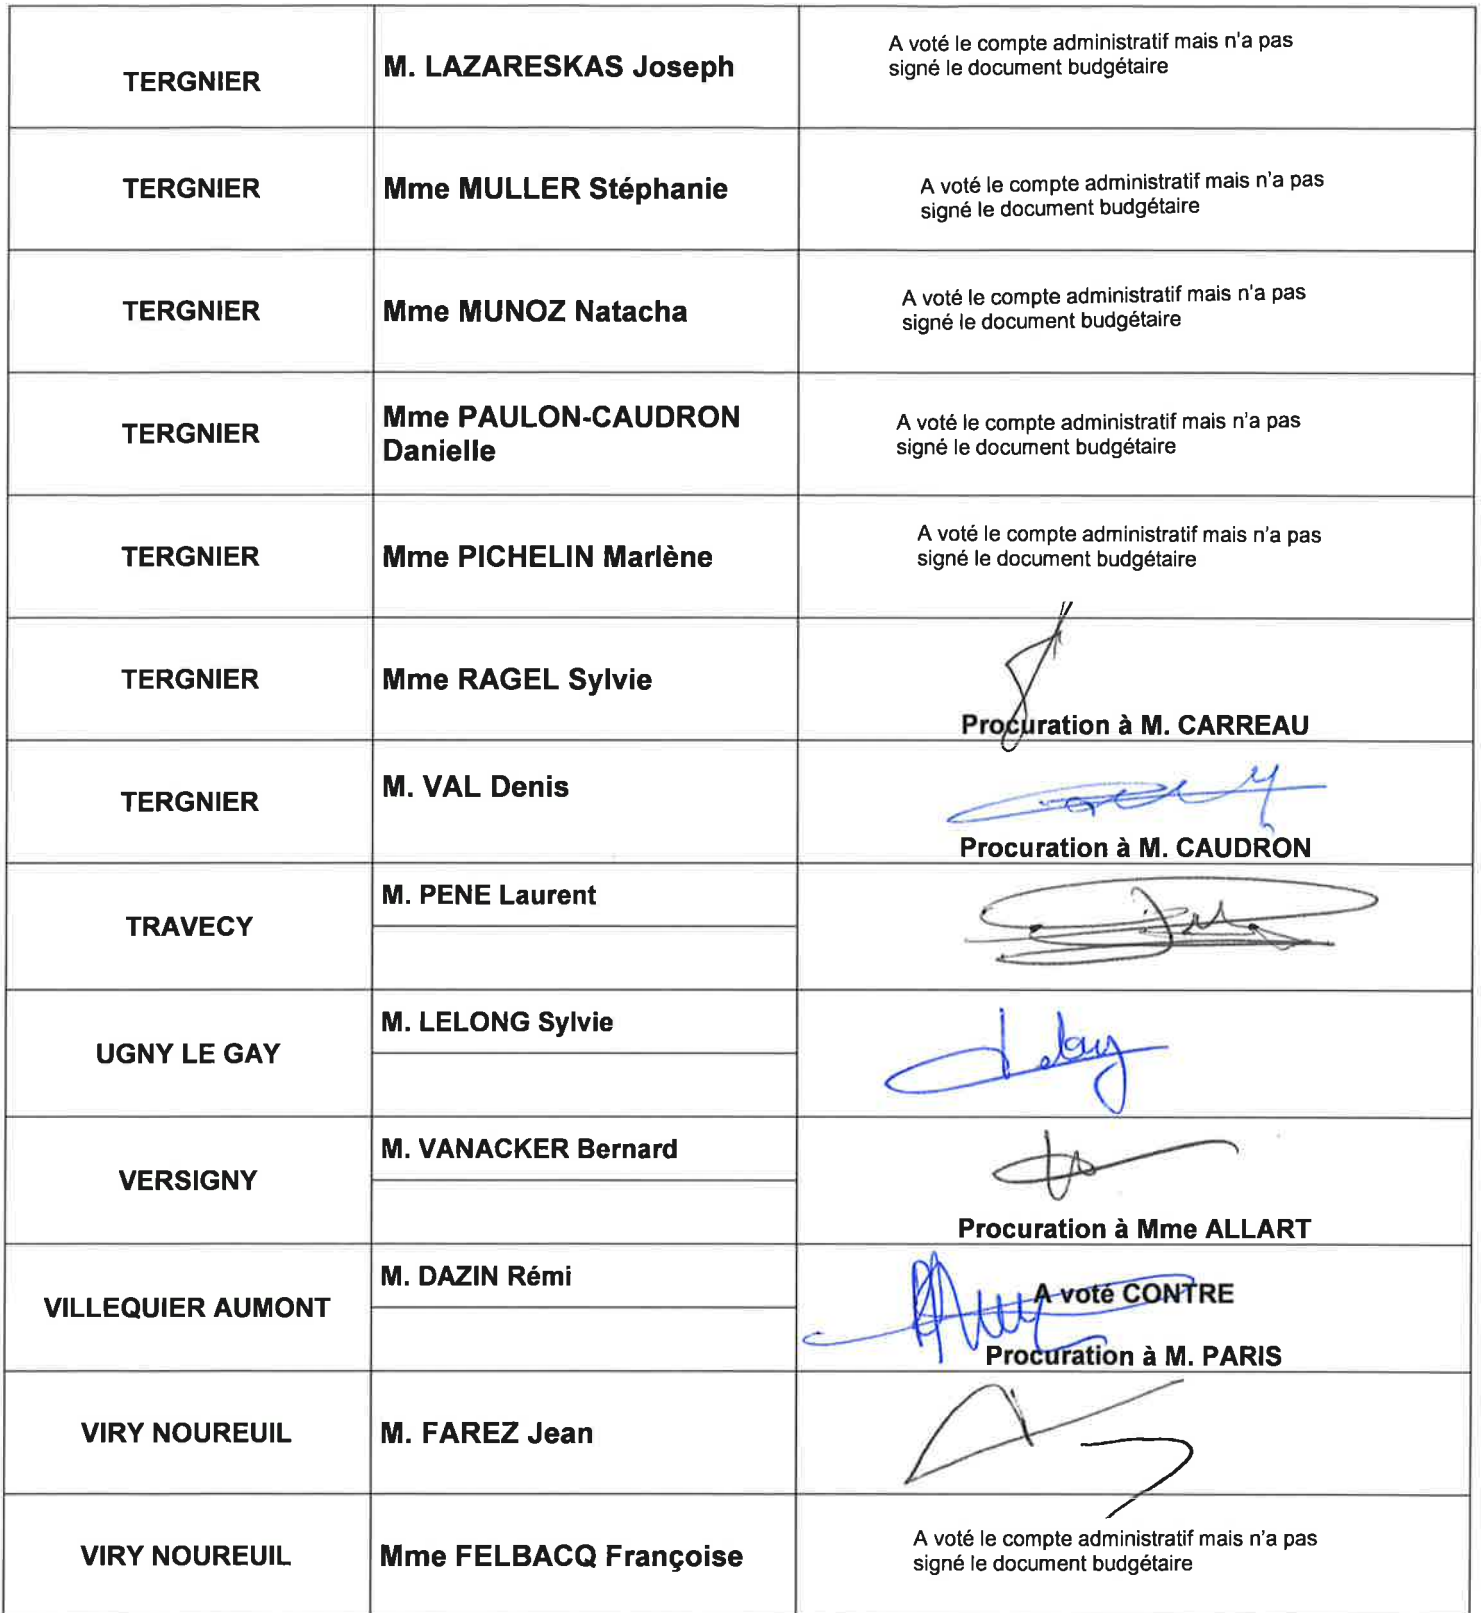 TERGNIER
M. LAZARESKAS Joseph
A voté le compte administratif mais n'a pas
signé le document budgétaire
TERGNIER
Mme MULLER Stéphanie
A voté le compte administratif mais n'a pas
signé le document budgétaire
TERGNIER
Mme MUNOZ Natacha
A voté le compte administratif mais n'a pas
signé le document budgétaire
TERGNIER
Mme PAULON-CAUDRON
Danielle
A voté le compte administratif mais n'a pas
signé le document budgétaire
TERGNIER
Mme PICHELIN Marlène
A voté le compte administratif mais n'a pas
signé le document budgétaire
TERGNIER
Mme RAGEL Sylvie
Procuration à M. CARREAU
TERGNIER
M. VAL Denis
Procuration à M. CAUDRON
TRAVECY
M. PENE Laurent
UGNY LE GAY
M. LELONG Sylvie
VERSIGNY
M. VANACKER Bernard
Procuration à Mme ALLART
VILLEQUIER AUMONT
M. DAZIN Rémi
A voté CONTRE
Procuration à M. PARIS
VIRY NOUREUIL
M. FAREZ Jean
VIRY NOUREUIL
Mme FELBACQ Françoise
A voté le compte administratif mais n'a pas
signé le document budgétaire